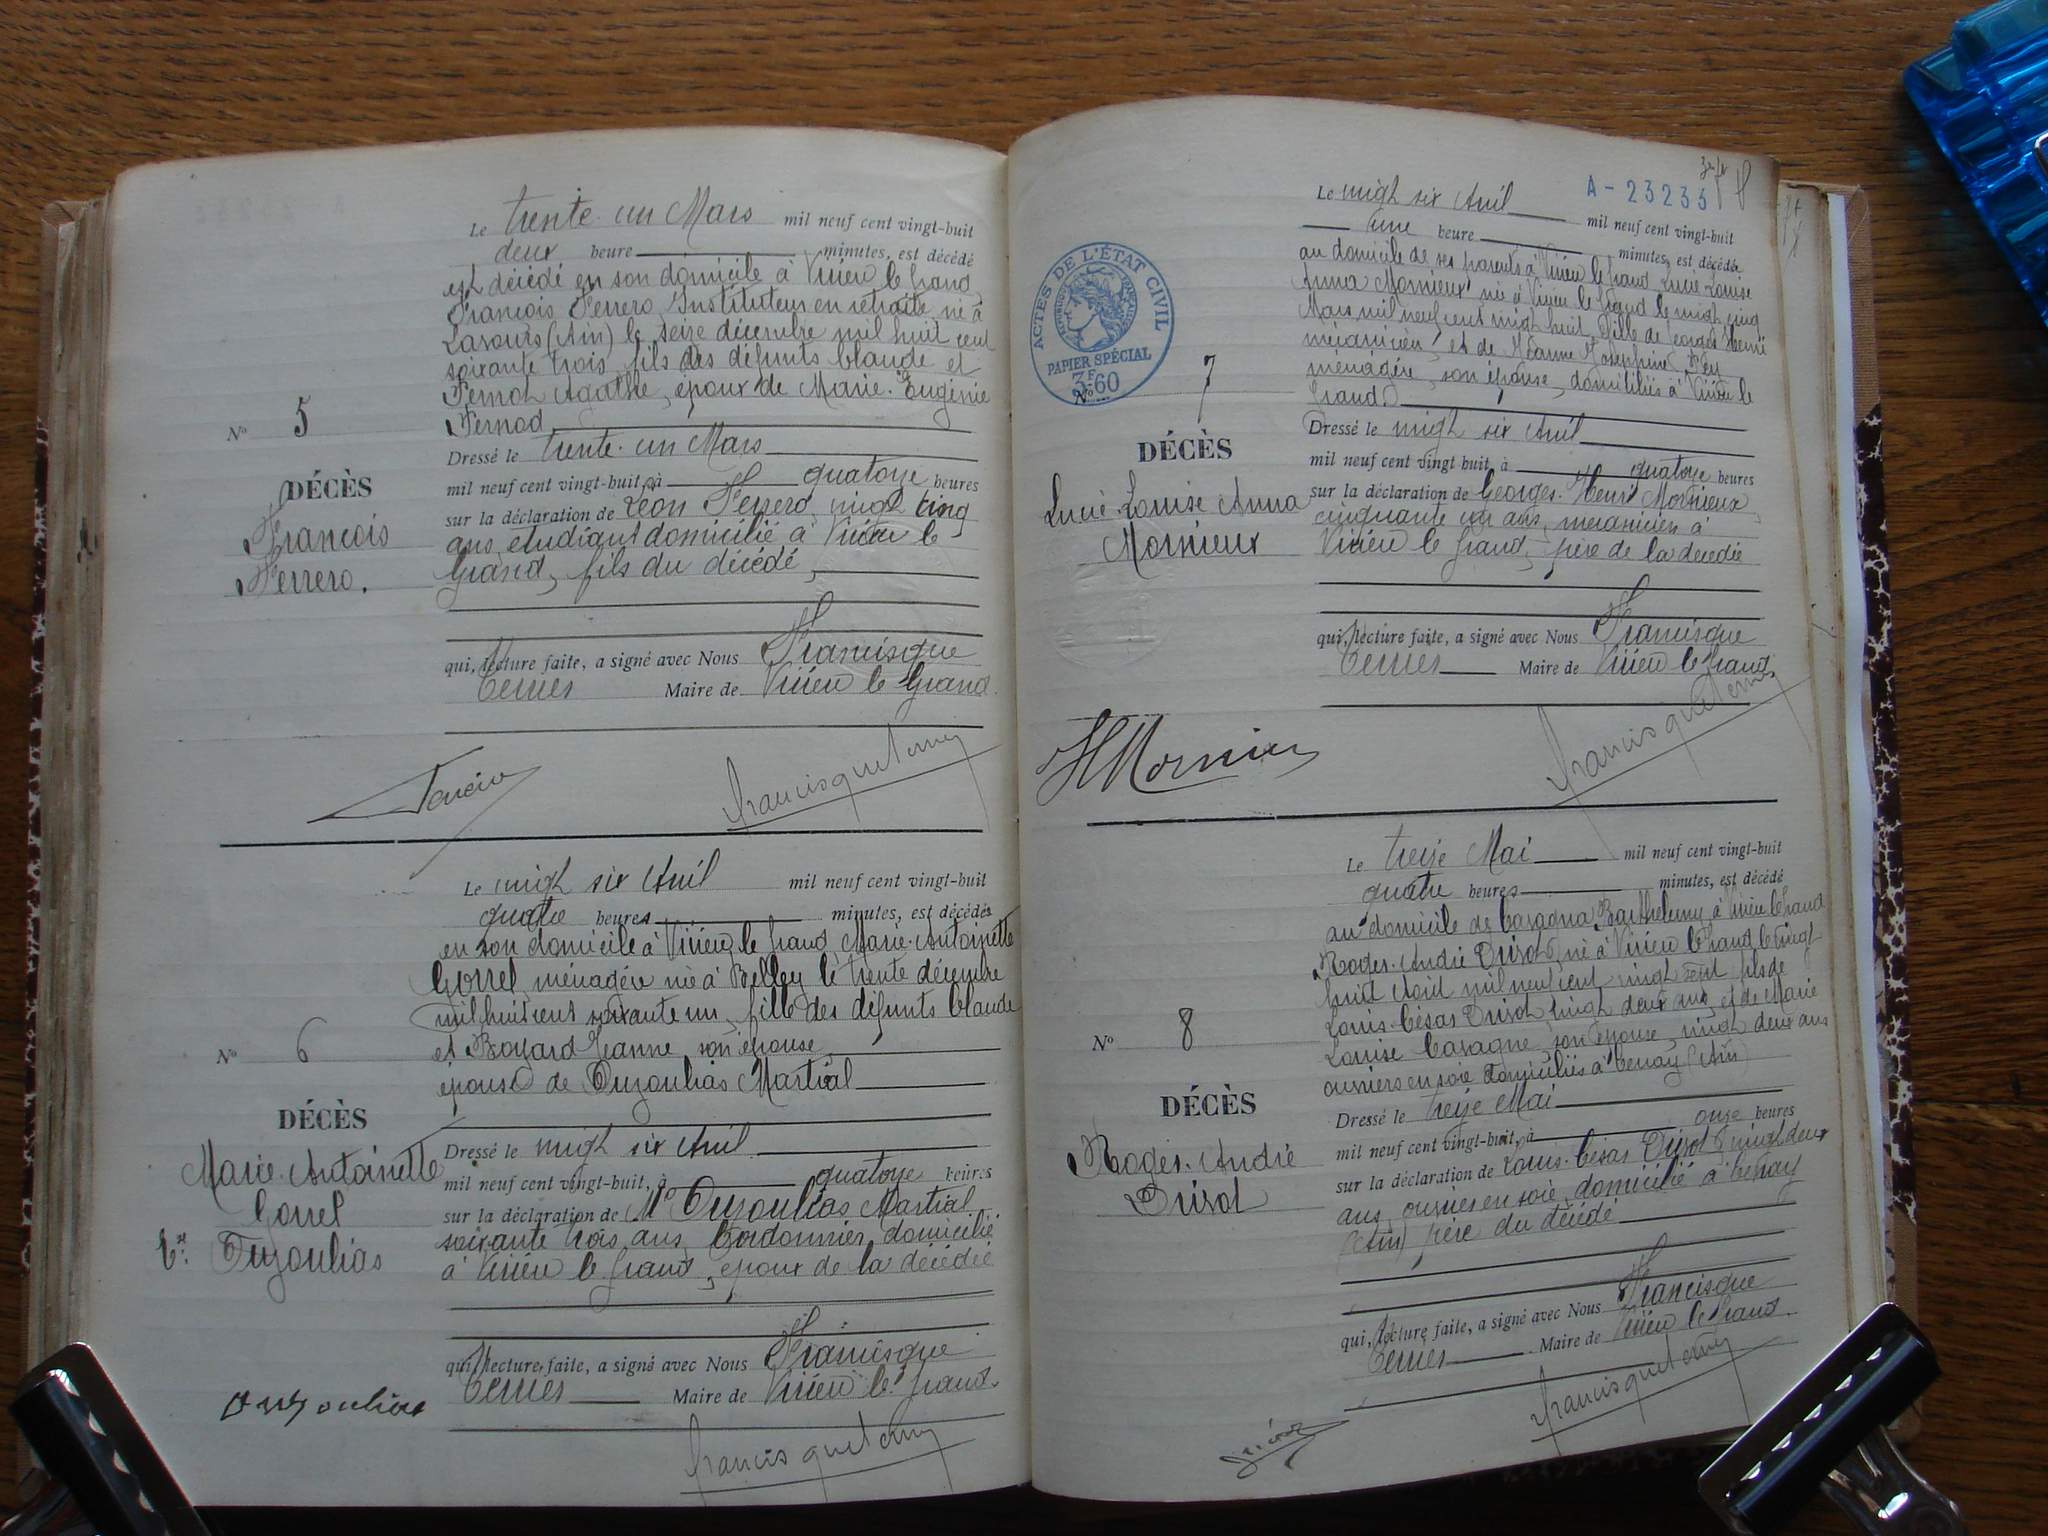 Le trente un Mars mil neuf cent vingt-huit
deux heure minutes, est décédé
est décédé en son domicile à Virieu le Grand
François Ferrero Instituteur en retraite né à
(Ain) le seize décembre mil huit cent
soixante trois, fils des défunts Claude et
Agathe, époux de Marie-Eugénie

Nº 5
DÉCÈS
François
Ferrero.
Dressé le trente-un Mars
mil neuf cent vingt-huit, à quatorze heures
sur la déclaration de Léon Ferrero, vingt cinq
ans, étudiant domicilié à Virieu le
Grand, fils du décédé,
qui, lecture faite, a signé avec Nous Francisque
Maire de Virieu le Grand.
Le vingt six Avril mil neuf cent vingt-huit
quatre heures minutes, est décédée
en son domicile à Virieu le Grand Marie-Antoinette
Gorrel ménagère née à Belley le trente décembre
mil huit cent soixante un, fille des défunts Claude
et Boyard Jeanne, son épouse,
épouse de Ouzoulias Martial
Nº 6
DÉCÈS
Marie-Antoinette
Gorrel
Ouzoulias
Dressé le vingt six Avril
mil neuf cent vingt-huit, à quatorze heures
sur la déclaration de Mr Ouzoulias Martial
soixante trois ans, Cordonnier, domicilié
à Virieu le Grand, époux de la décédée
qui, lecture faite, a signé avec Nous Francisque
Maire de Virieu le Grand.
Ouzoulias
A-23233
Le vingt six Avril mil neuf cent vingt-huit
une heure minutes, est décédée
au domicile de ses parents à Virieu le Grand Lucie Louise
Anna Mornieux née à Virieu le Grand le vingt cinq
Mars mil neuf cent vingt huit, fille de Georges Henri
mécanicien, et de Jeanne Joséphine
ménagère, son épouse, domiciliés à Virieu le
Grand.
ACTES DE L'ÉTAT CIVIL
PAPIER SPÉCIAL
3F60
Nº 7
DÉCÈS
Lucie-Louise Anna
Mornieux
Dressé le vingt six Avril
mil neuf cent vingt-huit, à quatorze heures
sur la déclaration de Georges-Henri Mornieux,
cinquante un ans, mécanicien à
Virieu le Grand, père de la décédée
qui, lecture faite, a signé avec Nous Francisque
Maire de Virieu le Grand
Le treize Mai mil neuf cent vingt-huit
quatre heures minutes, est décédé
au domicile de Barthélemy à Virieu le Grand
Roger-André né à Virieu le Grand le vingt
huit Août mil neuf cent vingt sept fils de
Louis-César vingt deux ans, et de Marie
Louise son épouse, vingt deux ans
ouvriers en soie domiciliés à Tenay (Ain)
Nº 8
DÉCÈS
Roger-André
Dressé le treize Mai
mil neuf cent vingt-huit, à onze heures
sur la déclaration de Louis-César vingt deux
ans, ouvrier en soie, domicilié à Tenay
(Ain) père du décédé
qui, lecture faite, a signé avec Nous Francisque
Maire de Virieu le Grand.